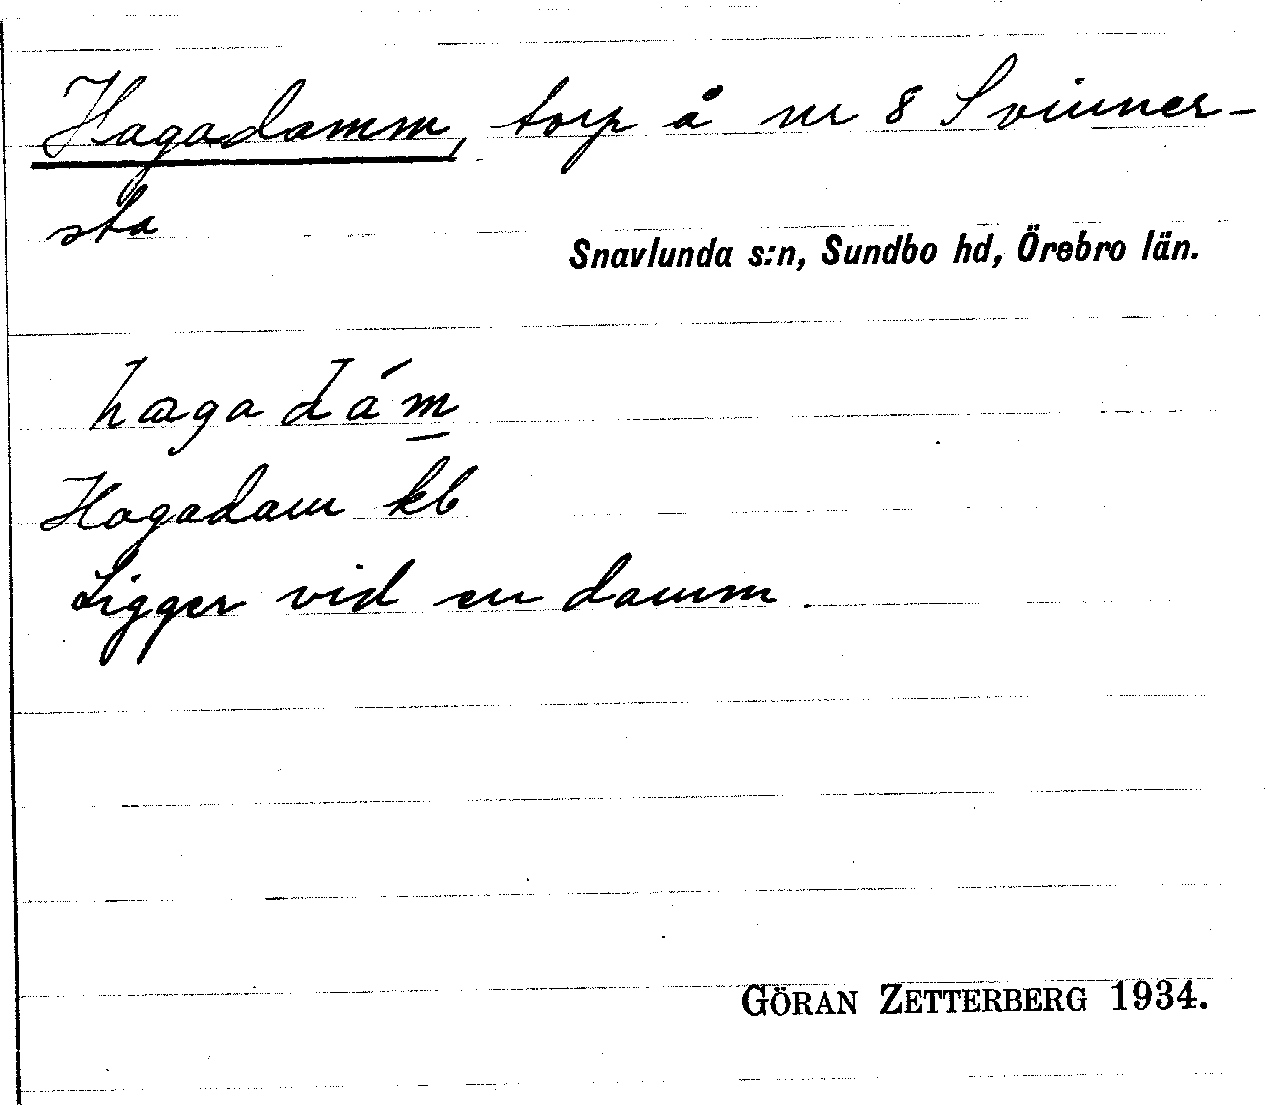 Hagadamm, torp å nr 8 Svinner-
sta
Snavlunda s:n, Sundbo hd, Örebro län.
hagadám
Hagadam kb
Ligger vid en damm.
GÖRAN ZETTERBERG 1934.